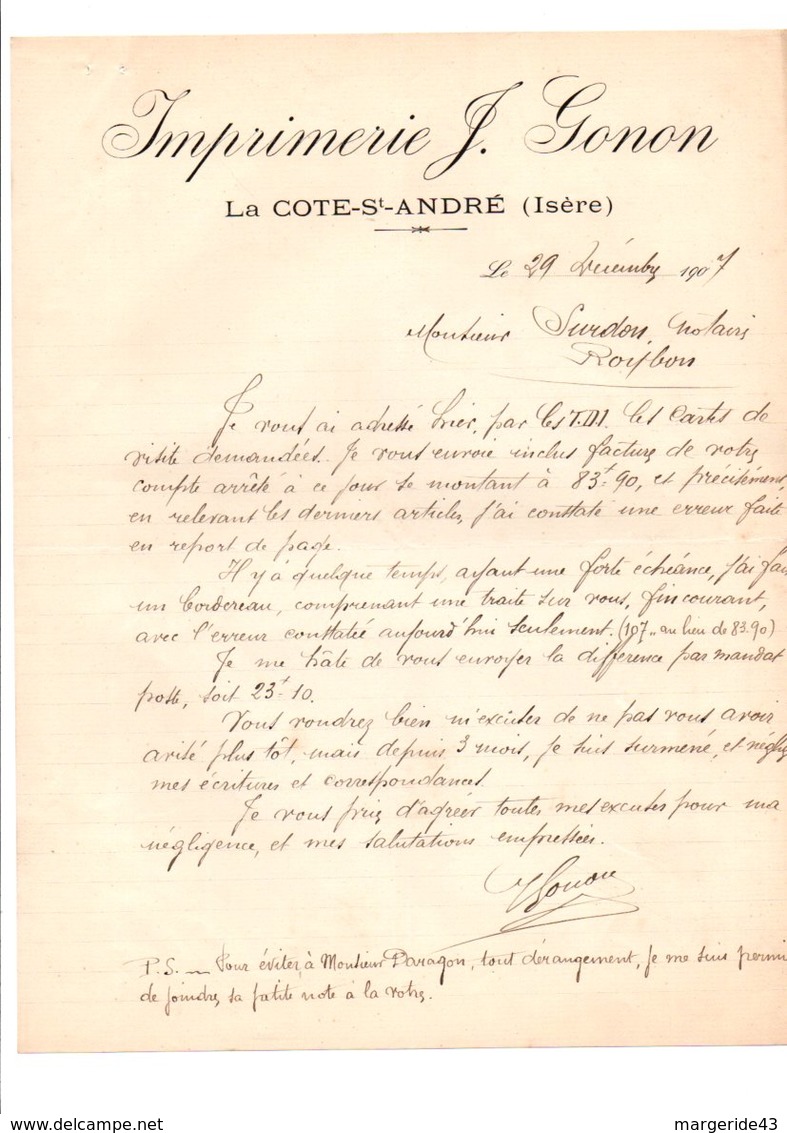 Imprimerie J. Gonon
La COTE-St-ANDRÉ (Isère)
Le 29 Décembre 1907
Monsieur Surdon, notaire
Roybon
Je vous ai adressé hier, par les T.D.I. les cartes de
visite demandées. Je vous envoie inclus facture de votre
compte arrêté à ce jour se montant à 83f 90, et précisément,
en relevant les derniers articles, j'ai constaté une erreur faite
en report de page.
Il y a quelque temps, ayant une forte échéance, j'ai fai
un bordereau, comprenant une traite sur vous, fin courant,
avec l'erreur constatée aujourd'hui seulement. (107 „ au lieu de 83.90)
Je me hâte de vous envoyer la différence par mandat
poste, soit 23f 10.
Vous voudrez bien m'excuser de ne pas vous avoir
avisé plus tôt, mais depuis 3 mois, je suis surmené, et néglig
mes écritures et correspondances.
Je vous prie d'agréer toutes mes excuses pour ma
négligence, et mes salutations empressées.
J Gonon
P.S. — Pour éviter, à Monsieur Paragon, tout dérangement, je me suis permi
de joindre, sa petite note à la votre.
delcampe.net
margeride43